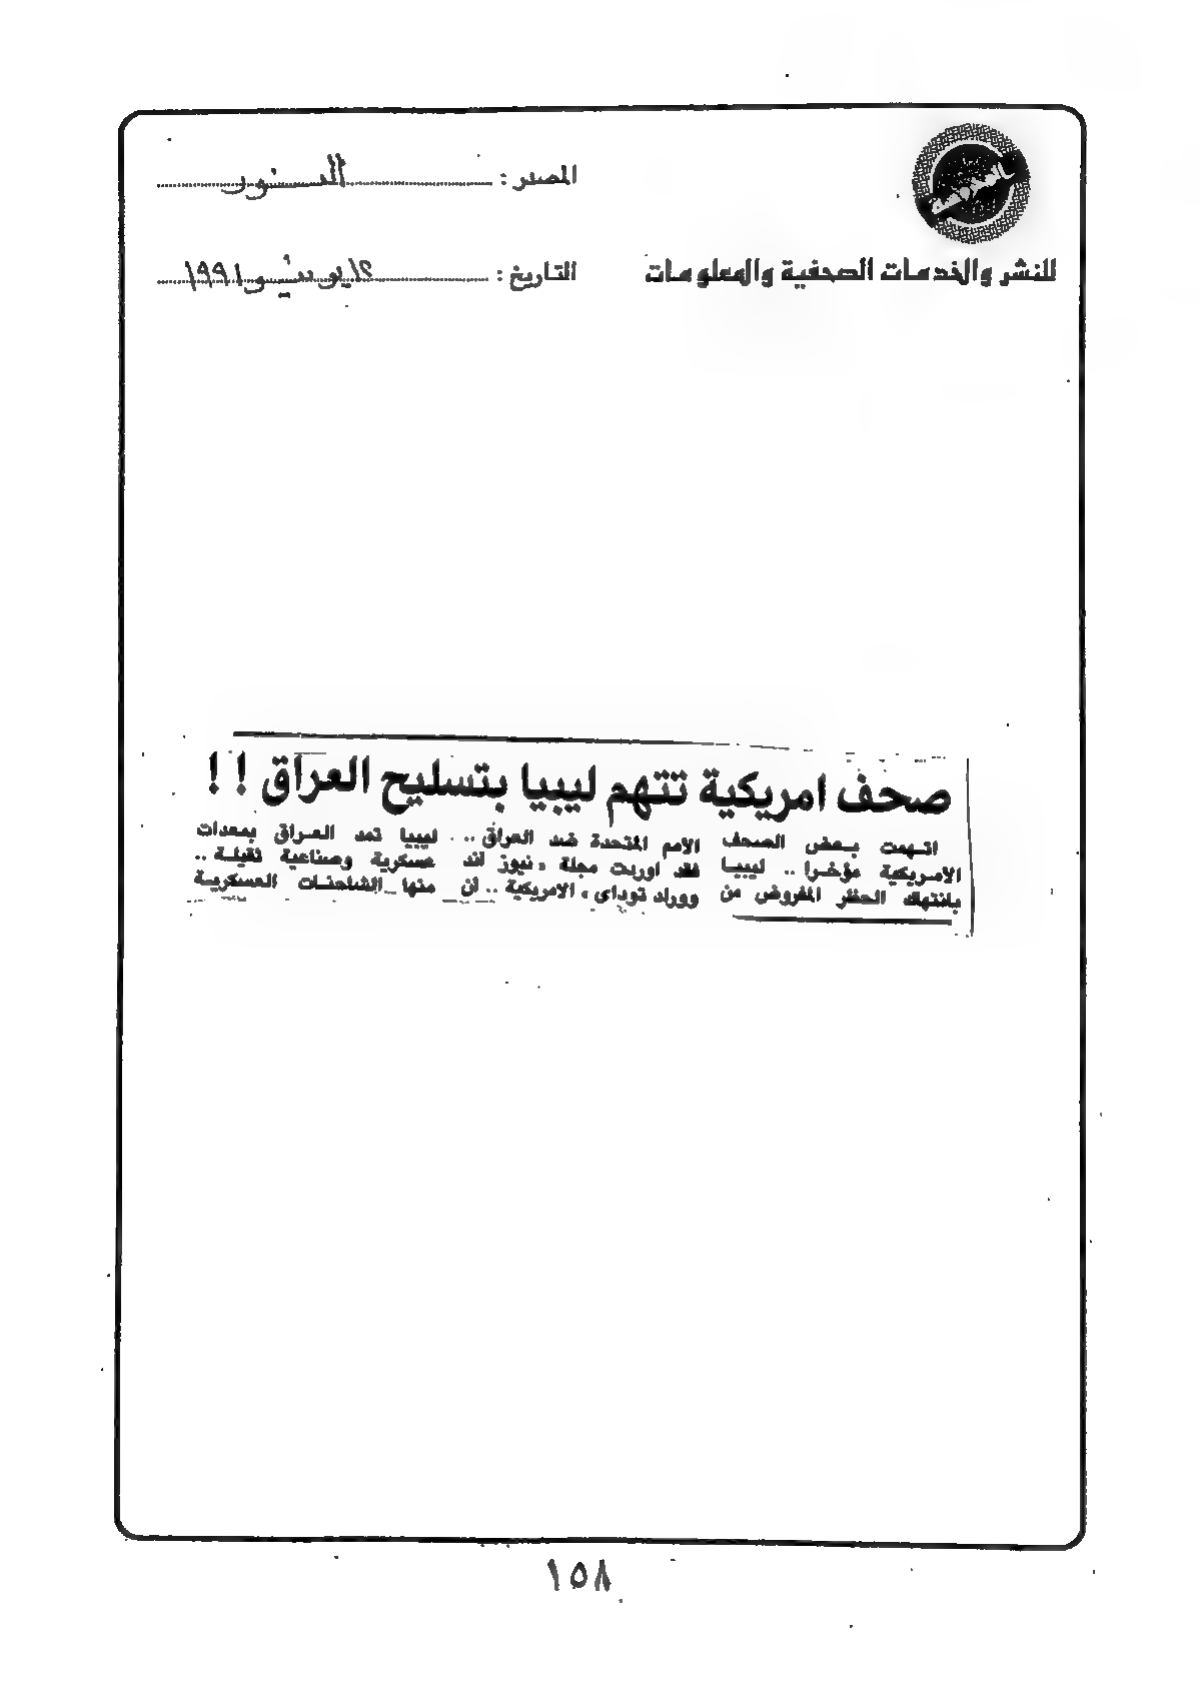 المصدر : النور
للنشر والخدمات الصحفية والمعلومات
التاريخ : ١٢ يونيو ١٩٩١
صحف امريكية تتهم ليبيا بتسليح العراق ! !
اتهمت بعض الصحف
الامريكية مؤخرا .. ليبيا
بانتهاك الحظر المفروض من
الامم المتحدة ضد العراق ..
فقد اوردت مجلة « نيوز اند
وورلد توداى » الامريكية .. ان
ليبيا تمد العراق بمعدات
عسكرية وصناعية ثقيلة ..
منها الشاحنات العسكرية
١٥٨